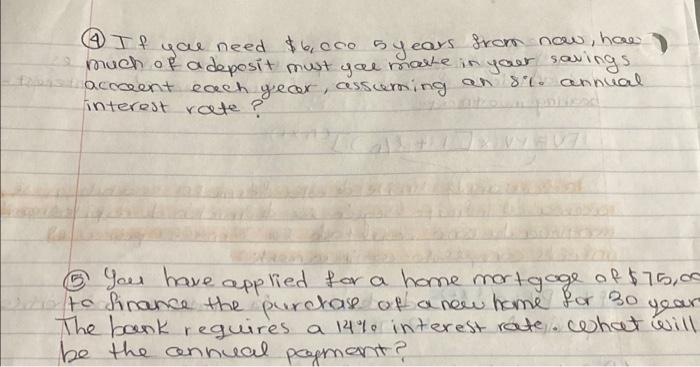 ④ If you need $6,000 5 years from now, how
much of a deposit must you make in your savings
account each year, assuming an 8% annual
interest rate?
⑤ You have applied for a home mortgage of $75,00
to finance the purchase of a new home for 30 years
The bank requires a 14% interest rate. What will
be the annual payment?